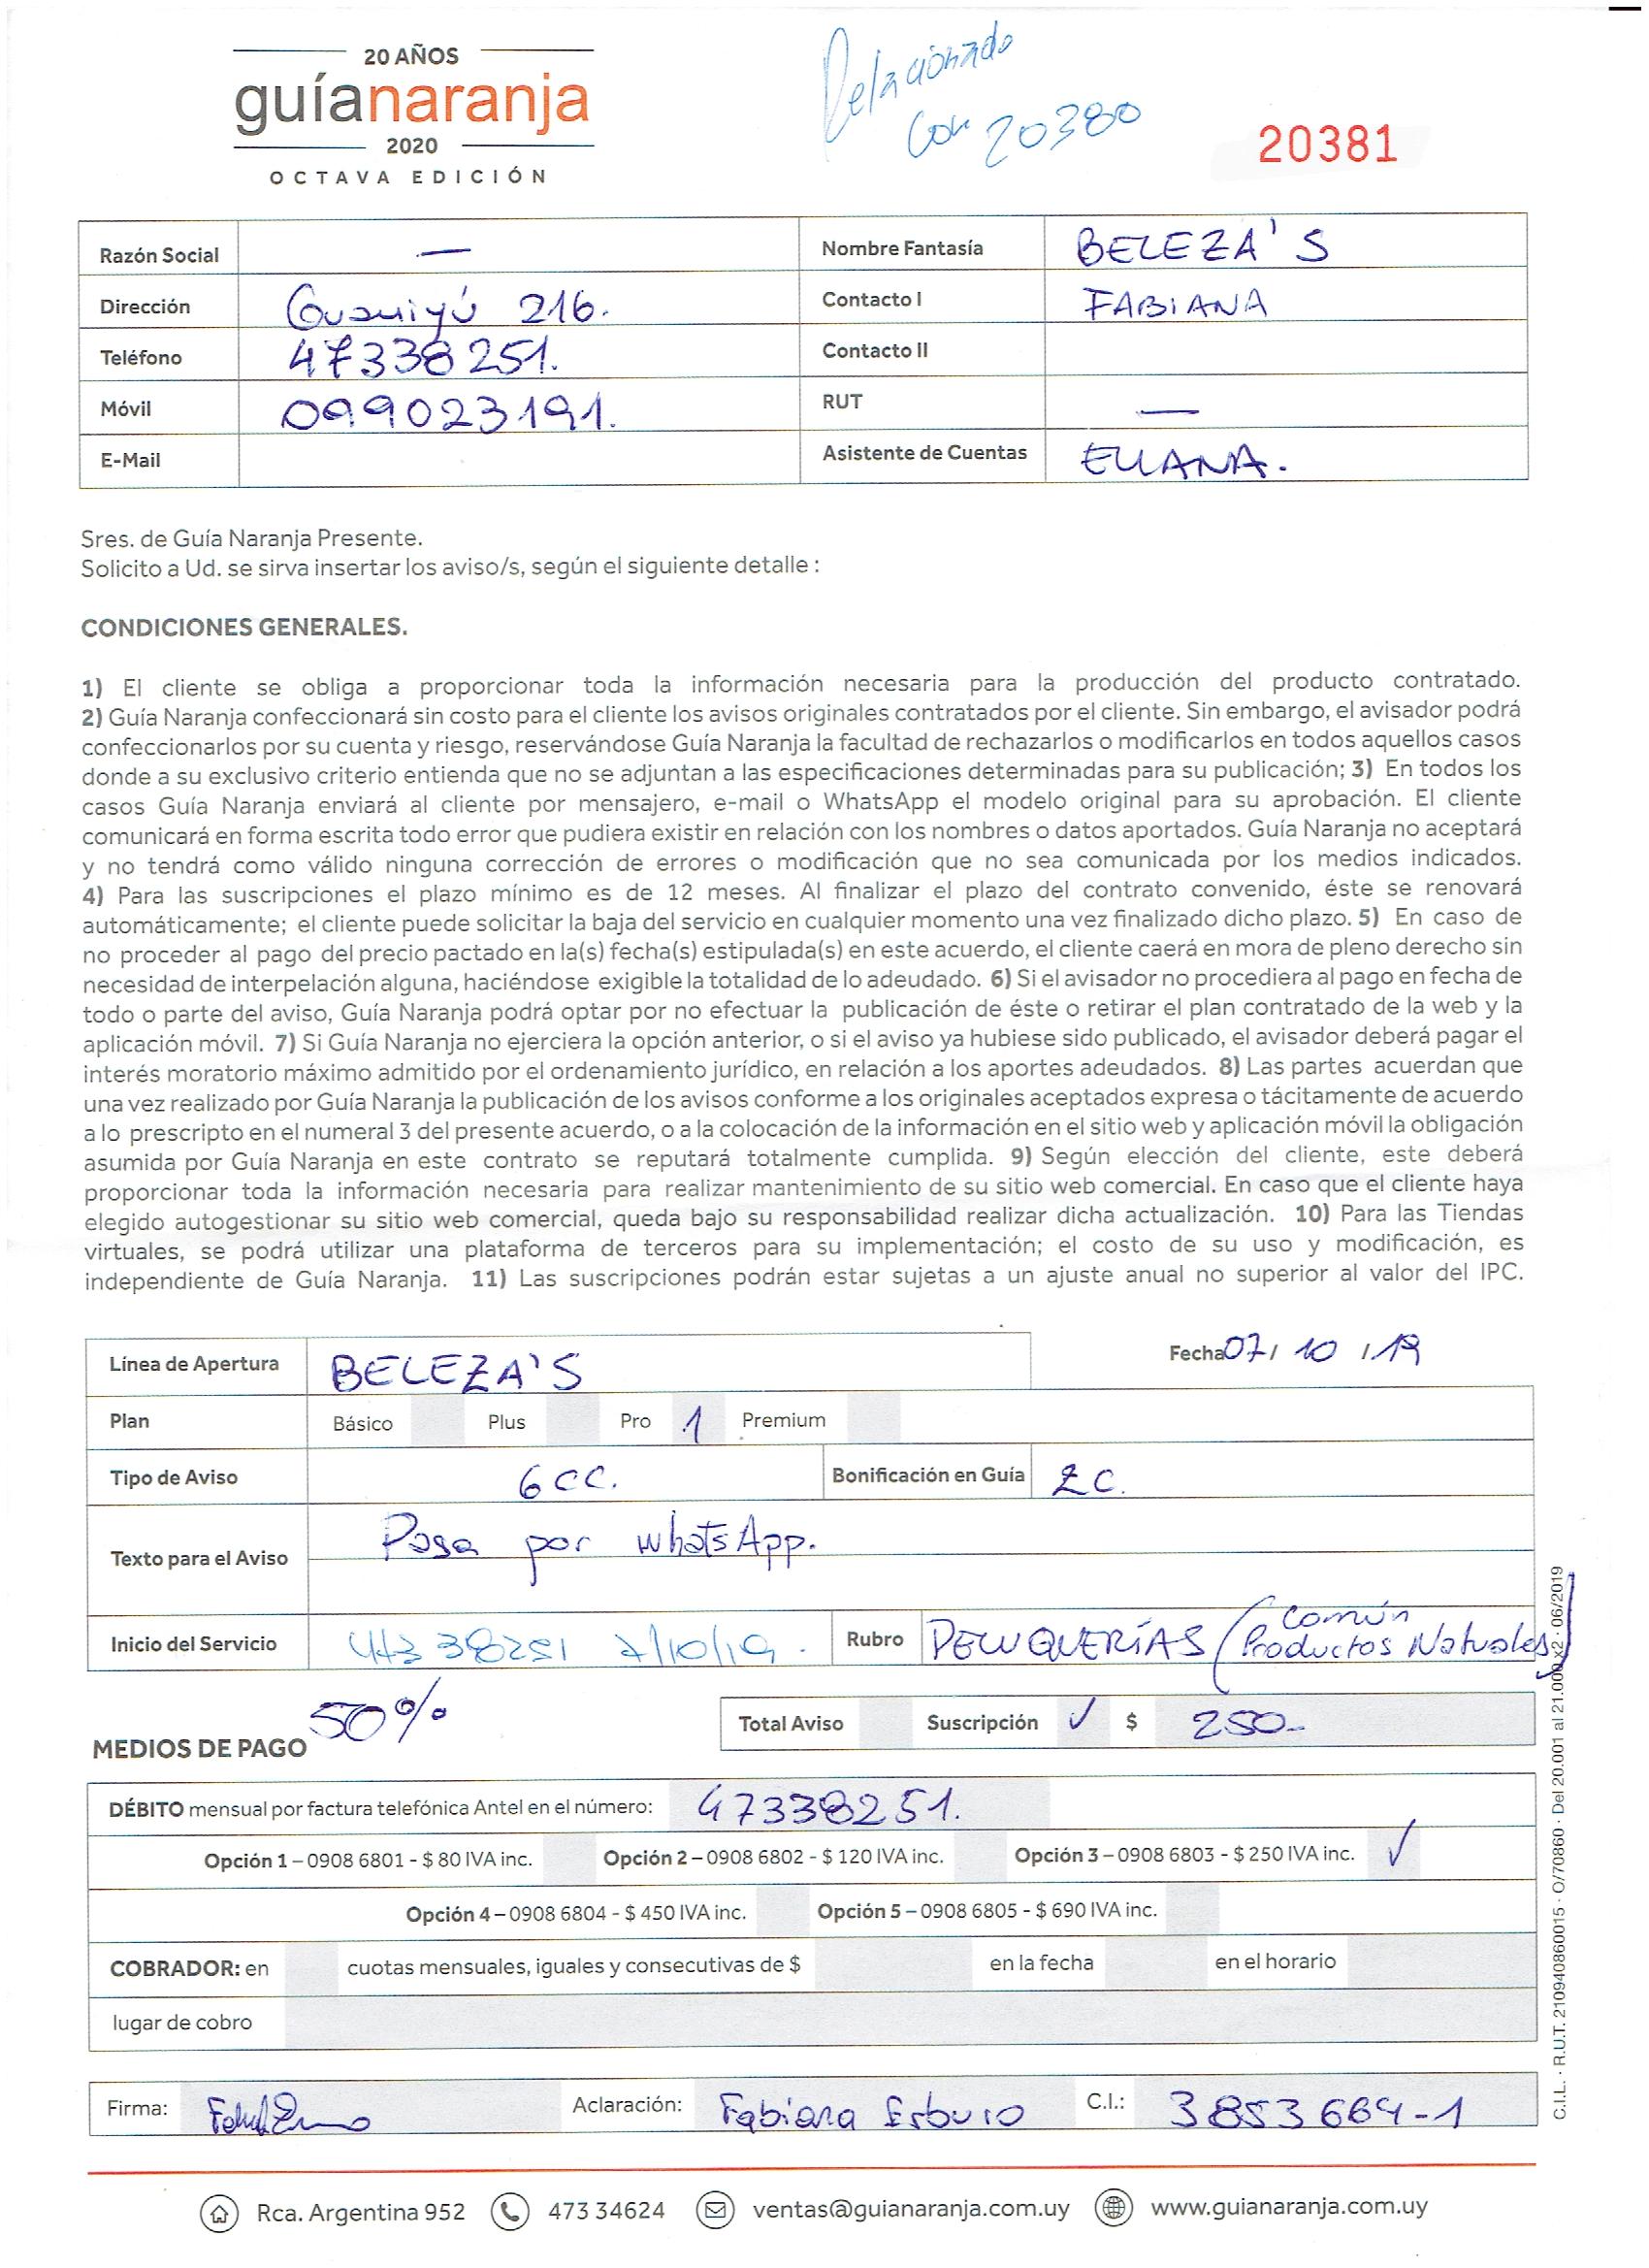 20 AÑOS
guíanaranja
2020
OCTAVA EDICIÓN
Relacionado
con 20380
20381
Razón Social —
Nombre Fantasía BELEZA'S
Dirección Guaviyú 216.
Contacto I FABIANA
Teléfono 47338251.
Contacto II
Móvil 099023191.
RUT —
E-Mail
Asistente de Cuentas ELIANA.
Sres. de Guía Naranja Presente.
Solicito a Ud. se sirva insertar los aviso/s, según el siguiente detalle :
CONDICIONES GENERALES.
1) El cliente se obliga a proporcionar toda la información necesaria para la producción del producto contratado.
2) Guía Naranja confeccionará sin costo para el cliente los avisos originales contratados por el cliente. Sin embargo, el avisador podrá
confeccionarlos por su cuenta y riesgo, reservándose Guía Naranja la facultad de rechazarlos o modificarlos en todos aquellos casos
donde a su exclusivo criterio entienda que no se adjuntan a las especificaciones determinadas para su publicación; 3) En todos los
casos Guía Naranja enviará al cliente por mensajero, e-mail o WhatsApp el modelo original para su aprobación. El cliente
comunicará en forma escrita todo error que pudiera existir en relación con los nombres o datos aportados. Guía Naranja no aceptará
y no tendrá como válido ninguna corrección de errores o modificación que no sea comunicada por los medios indicados.
4) Para las suscripciones el plazo mínimo es de 12 meses. Al finalizar el plazo del contrato convenido, éste se renovará
automáticamente; el cliente puede solicitar la baja del servicio en cualquier momento una vez finalizado dicho plazo. 5) En caso de
no proceder al pago del precio pactado en la(s) fecha(s) estipulada(s) en este acuerdo, el cliente caerá en mora de pleno derecho sin
necesidad de interpelación alguna, haciéndose exigible la totalidad de lo adeudado. 6) Si el avisador no procediera al pago en fecha de
todo o parte del aviso, Guía Naranja podrá optar por no efectuar la publicación de éste o retirar el plan contratado de la web y la
aplicación móvil. 7) Si Guía Naranja no ejerciera la opción anterior, o si el aviso ya hubiese sido publicado, el avisador deberá pagar el
interés moratorio máximo admitido por el ordenamiento jurídico, en relación a los aportes adeudados. 8) Las partes acuerdan que
una vez realizado por Guía Naranja la publicación de los avisos conforme a los originales aceptados expresa o tácitamente de acuerdo
a lo prescripto en el numeral 3 del presente acuerdo, o a la colocación de la información en el sitio web y aplicación móvil la obligación
asumida por Guía Naranja en este contrato se reputará totalmente cumplida. 9) Según elección del cliente, este deberá
proporcionar toda la información necesaria para realizar mantenimiento de su sitio web comercial. En caso que el cliente haya
elegido autogestionar su sitio web comercial, queda bajo su responsabilidad realizar dicha actualización. 10) Para las Tiendas
virtuales, se podrá utilizar una plataforma de terceros para su implementación; el costo de su uso y modificación, es
independiente de Guía Naranja. 11) Las suscripciones podrán estar sujetas a un ajuste anual no superior al valor del IPC.
Línea de Apertura BELEZA'S
Fecha 07/ 10 / 19
Plan Básico Plus Pro 1 Premium
Tipo de Aviso 6CC. Bonificación en Guía 2C.
Texto para el Aviso Pasa por whatsApp.
Inicio del Servicio 47338251 7/10/19. Rubro PELUQUERÍAS (Común
Productos Naturales)
50%
Total Aviso Suscripción ✓ $ 250-
MEDIOS DE PAGO
DÉBITO mensual por factura telefónica Antel en el número: 47338251.
Opción 1 – 0908 6801 - $ 80 IVA inc. Opción 2 – 0908 6802 - $ 120 IVA inc. Opción 3 – 0908 6803 - $ 250 IVA inc. ✓
Opción 4 – 0908 6804 - $ 450 IVA inc. Opción 5 – 0908 6805 - $ 690 IVA inc.
COBRADOR: en cuotas mensuales, iguales y consecutivas de $ en la fecha en el horario
lugar de cobro
Firma: Aclaración: Fabiana Esburo C.I.: 3853664-1
C.I.L. · R.U.T. 210940860015 · O/70860 · Del 20.001 al 21.000 x2 · 06/2019
Rca. Argentina 952 473 34624 ventas@guianaranja.com.uy www.guianaranja.com.uy